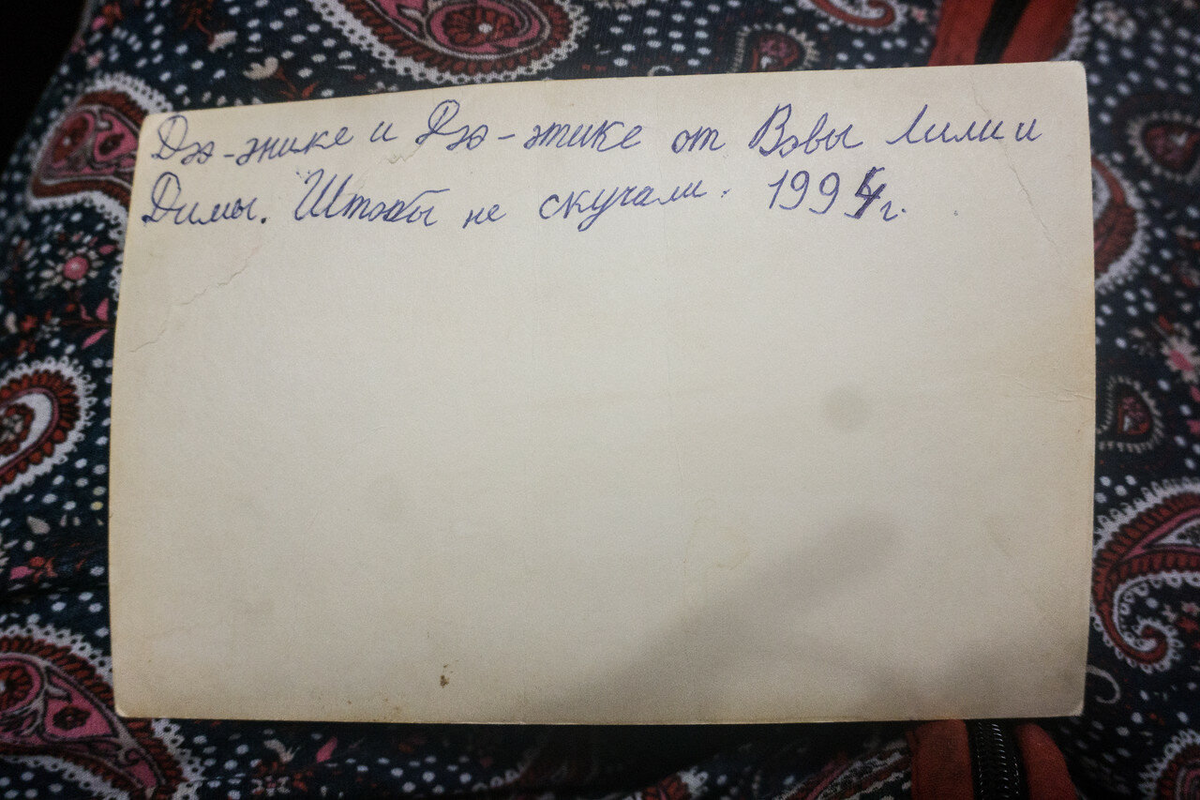 Дэ-энике и Рэ-этике от Вовы Лили и
Димы. Штобы не скучали. 1994г.